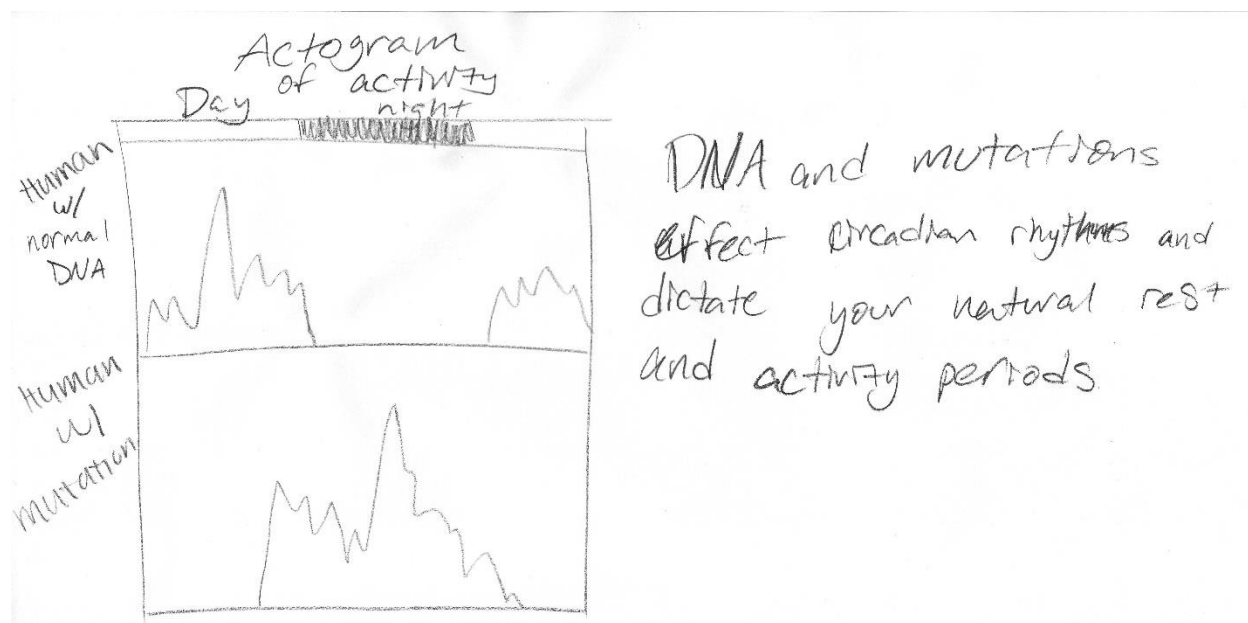 Actogram
of activity
Day night
Human
w/
normal
DNA
Human
w/
mutation
DNA and mutations
effect circadian rhythms and
dictate your natural rest
and activity periods